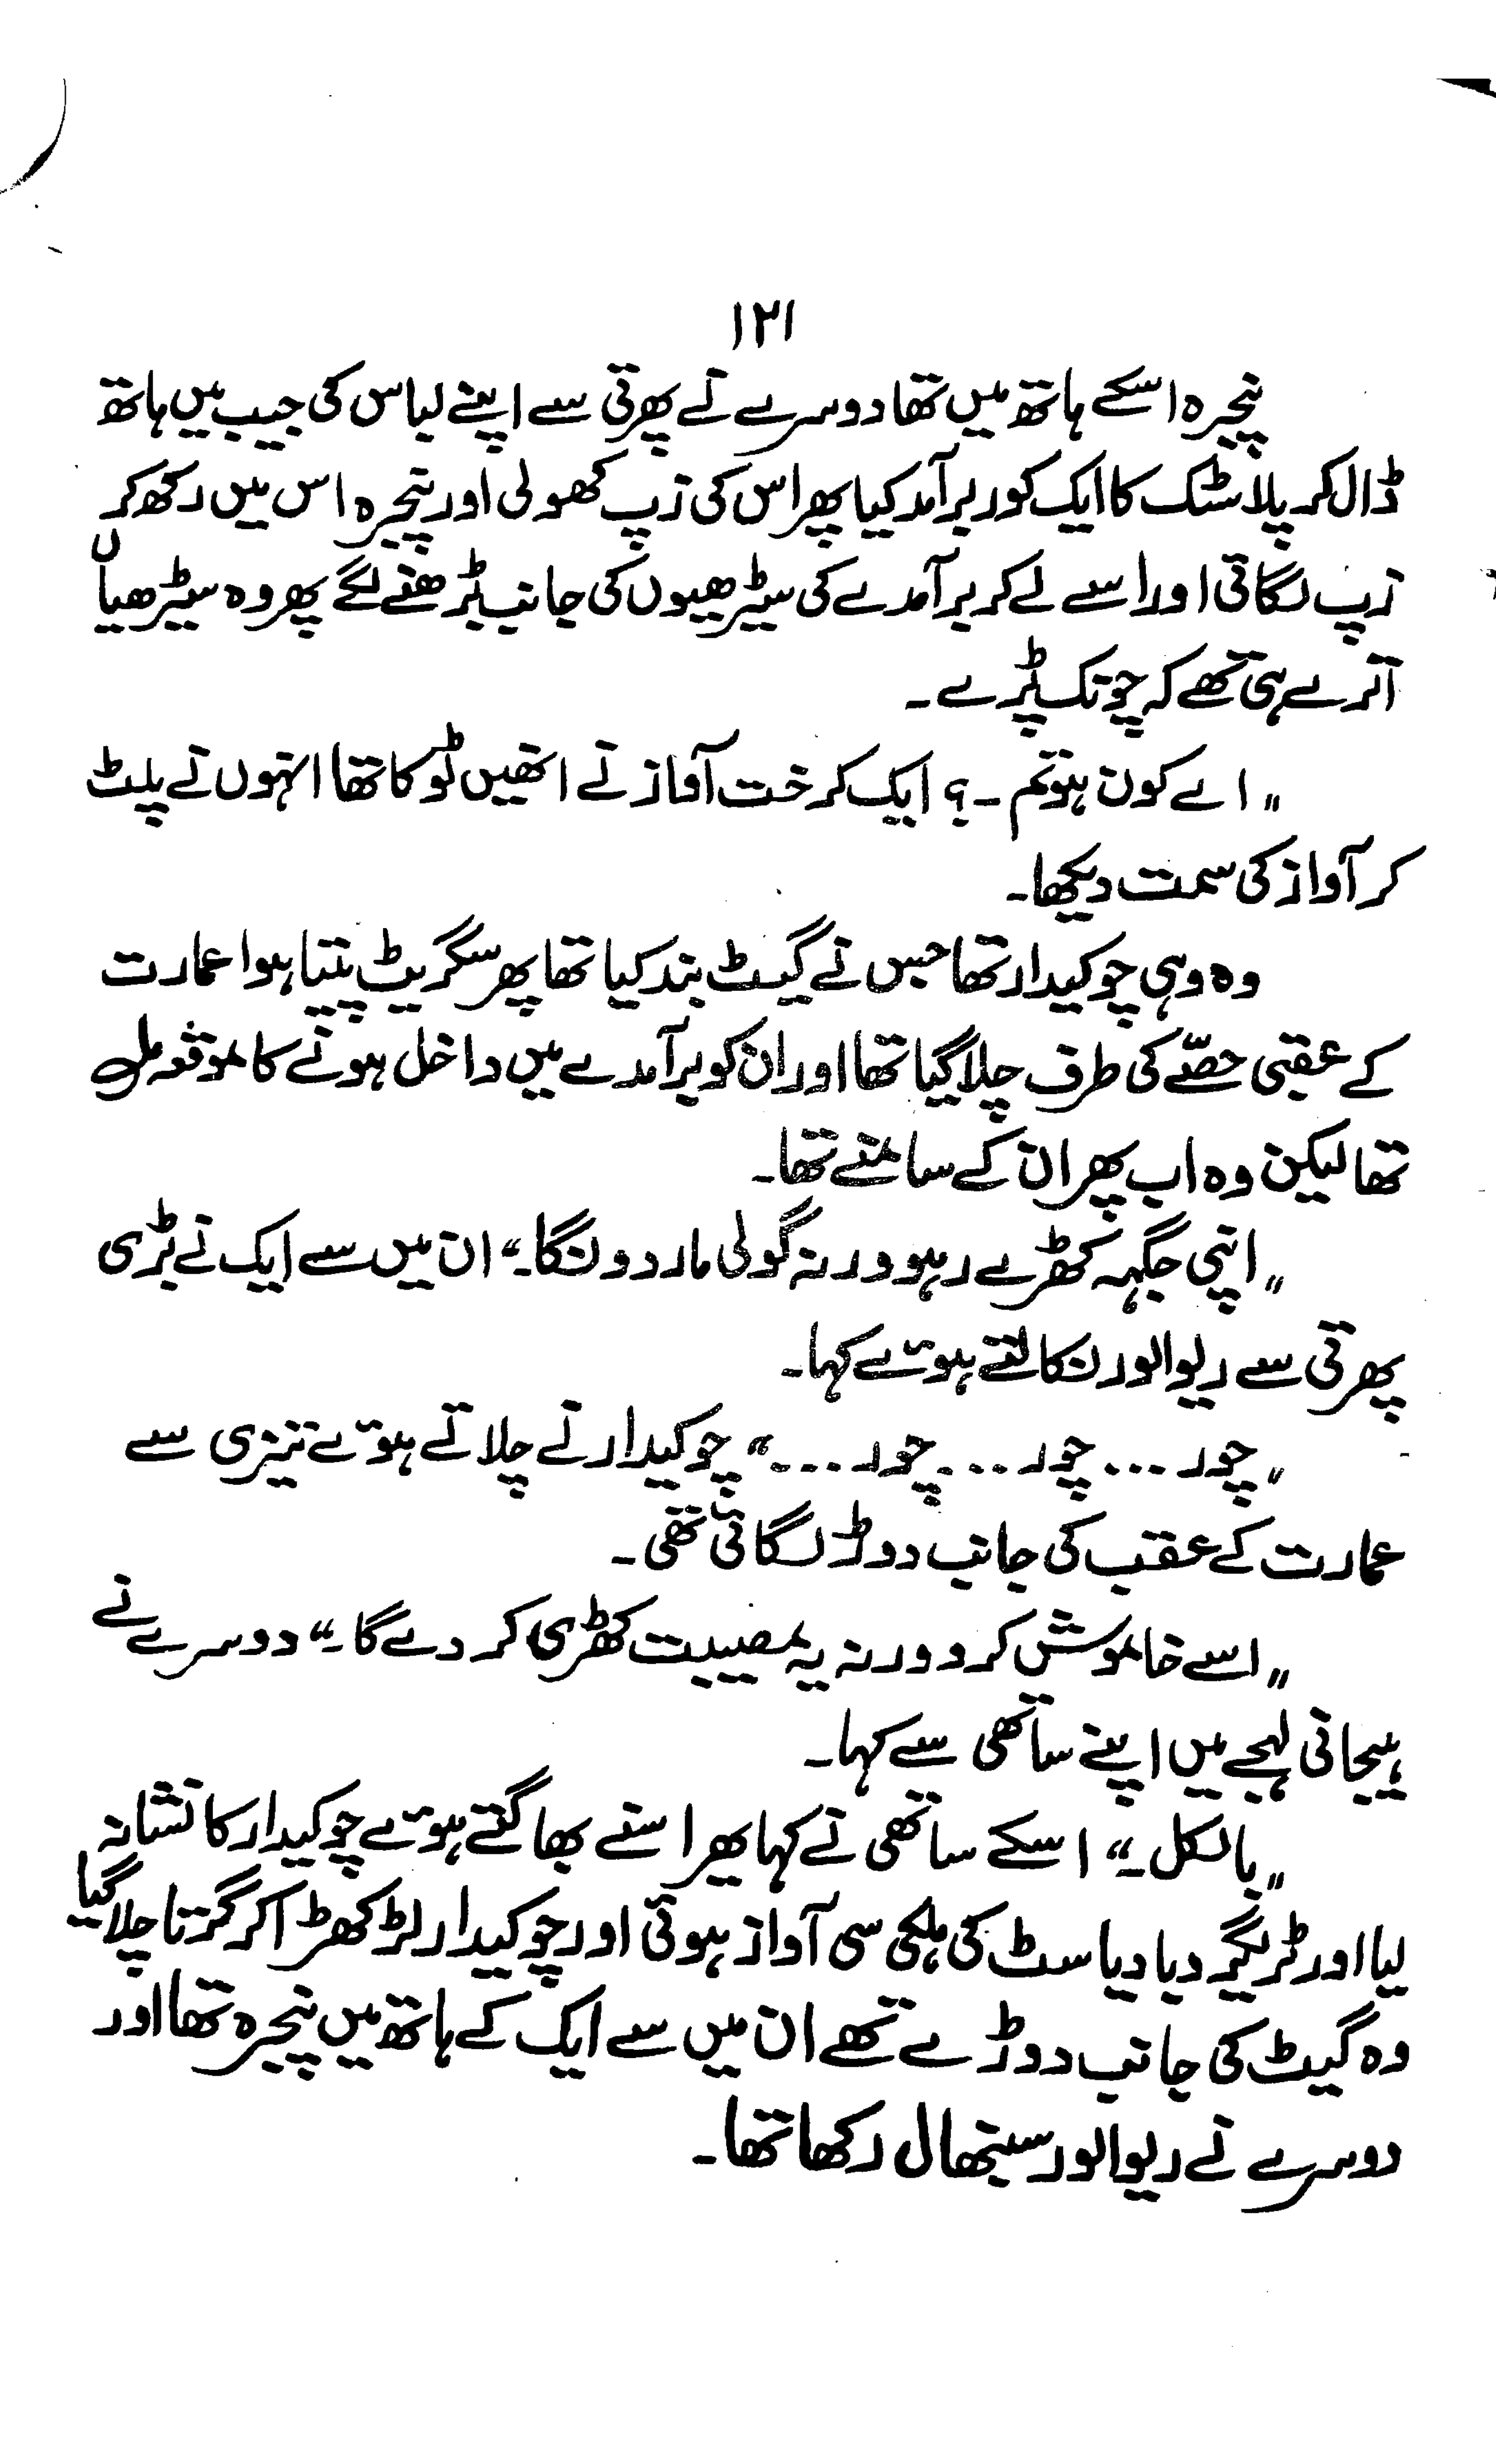 ۱۲۱
پنجرہ اسکے ہاتھ میں تھا دوسرے نے پھرتی سے اپنے لباس کی جیب میں ہاتھ
ڈال کر پلاسٹک کا ایک کور برآمد کیا پھر اس کی زپ کھولی اور پنجرہ اس میں رکھ کر
زپ لگائی اور اسے لے کر برآمدے کی سیڑھیوں کی جانب بڑھنے لگے پھر وہ سیڑھیاں
اترے ہی تھے کہ چونک پڑے۔
"اے کون ہو تم۔؟ ایک کرخت آواز نے انھیں ٹوکا تھا انہوں نے پلٹ
کر آواز کی سمت دیکھا۔
وہ وہی چوکیدار تھا جس نے گیٹ بند کیا تھا پھر سگریٹ پیتا ہوا عمارت
کے عقبی حصّے کی طرف چلا گیا تھا اور ان کو برآمدے میں داخل ہونے کا موقعہ ملا
تھا لیکن وہ اب پھر ان کے سامنے تھا۔
"اپنی جگہہ کھڑے رہو ورنہ گولی مار دونگا۔" ان میں سے ایک نے بڑی
پھرتی سے ریوالور نکالتے ہوئے کہا۔
"چور ... چور ... چور ..." چوکیدار نے چلاتے ہوئے تیزی سے
عمارت کے عقب کی جانب دوڑ لگائی تھی۔
"اسے خاموش کرو ورنہ یہ مصیبت کھڑی کر دے گا۔" دوسرے نے
ہیجانی لہجے میں اپنے ساتھی سے کہا۔
"بالکل۔" اسکے ساتھی نے کہا پھر اسنے بھاگتے ہوئے چوکیدار کا نشانہ
لیا اور ٹریگر دبا دیا سٹ کی ہلکی سی آواز ہوئی اور چوکیدار لڑکھڑا کر گرتا چلا گیا
وہ گیٹ کی جانب دوڑے تھے ان میں سے ایک کے ہاتھ میں پنجرہ تھا اور
دوسرے نے ریوالور سنبھال رکھا تھا۔